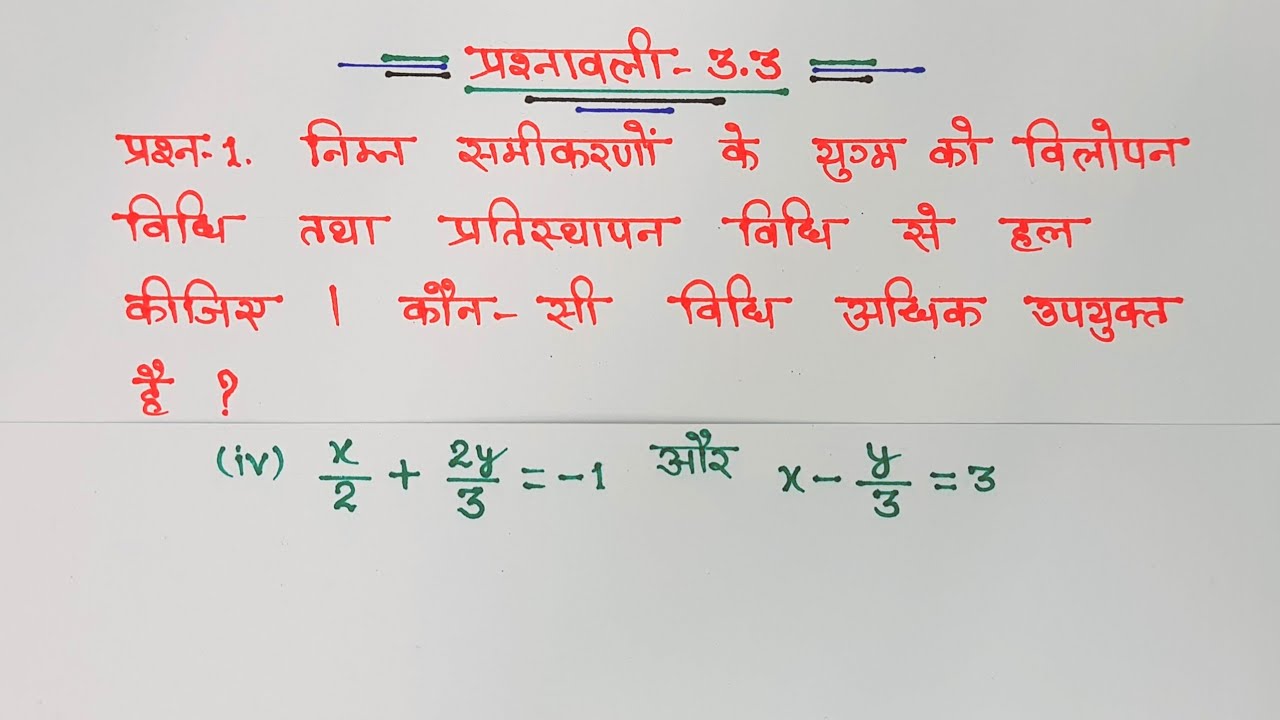 प्रश्नावली - 3.3
प्रश्न-1. निम्न समीकरणों के युग्म को विलोपन
विधि तथा प्रतिस्थापन विधि से हल
कीजिए । कौन-सी विधि अधिक उपयुक्त
है ?
(iv) x/2 + 2y/3 = -1 और x - y/3 = 3